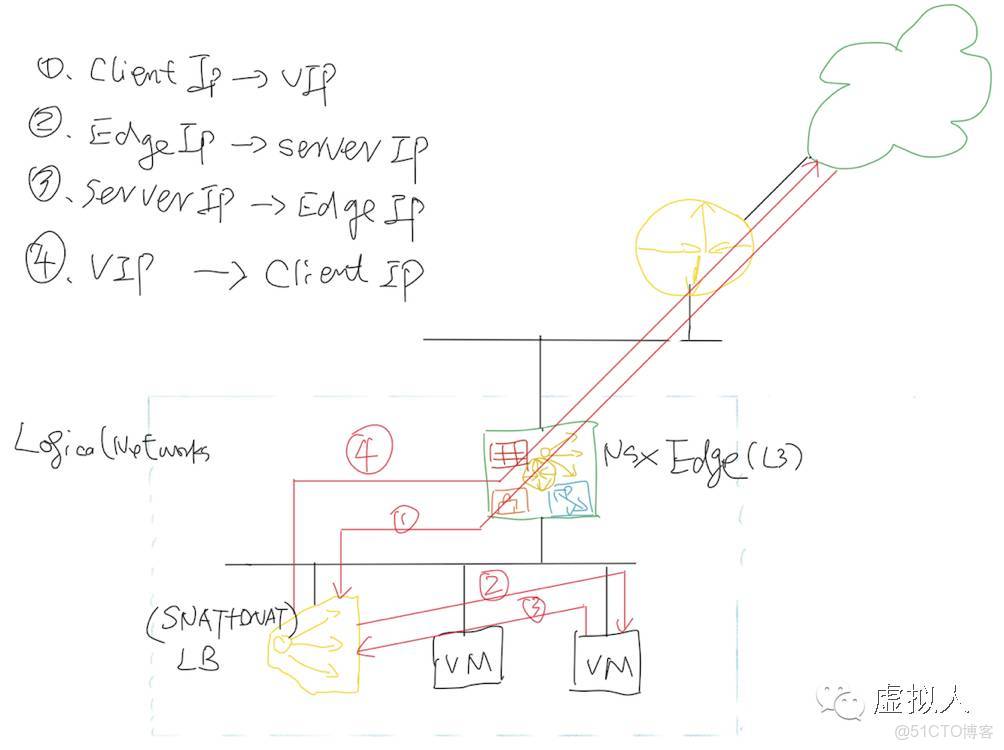 ①. Client Ip → VIP
②. Edge Ip → server IP
③. Server IP → Edge IP
④. VIP → Client IP
Logical Networks
④
NSX Edge (L3)
①
②
③
(SNAT+DNAT)
LB
VM
VM
虚拟人
@51CTO博客